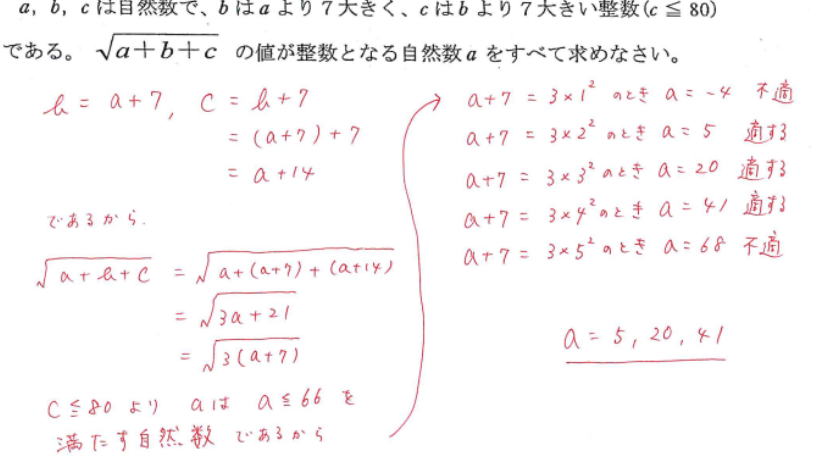 a, b, cは自然数で、bはaより7大きく、cはbより7大きい整数(c≦80)
である。 √a+b+c の値が整数となる自然数aをすべて求めなさい。
b = a+7, c = b+7
= (a+7)+7
= a+14
であるから.
√a+b+c = √a+(a+7)+(a+14)
= √3a+21
= √3(a+7)
c≦80 より aは a≦66 を
満たす自然数であるから
a+7 = 3×1² のとき a=-4 不適
a+7 = 3×2² のとき a=5 適する
a+7 = 3×3² のとき a=20 適する
a+7 = 3×4² のとき a=41 適する
a+7 = 3×5² のとき a=68 不適
a=5, 20, 41